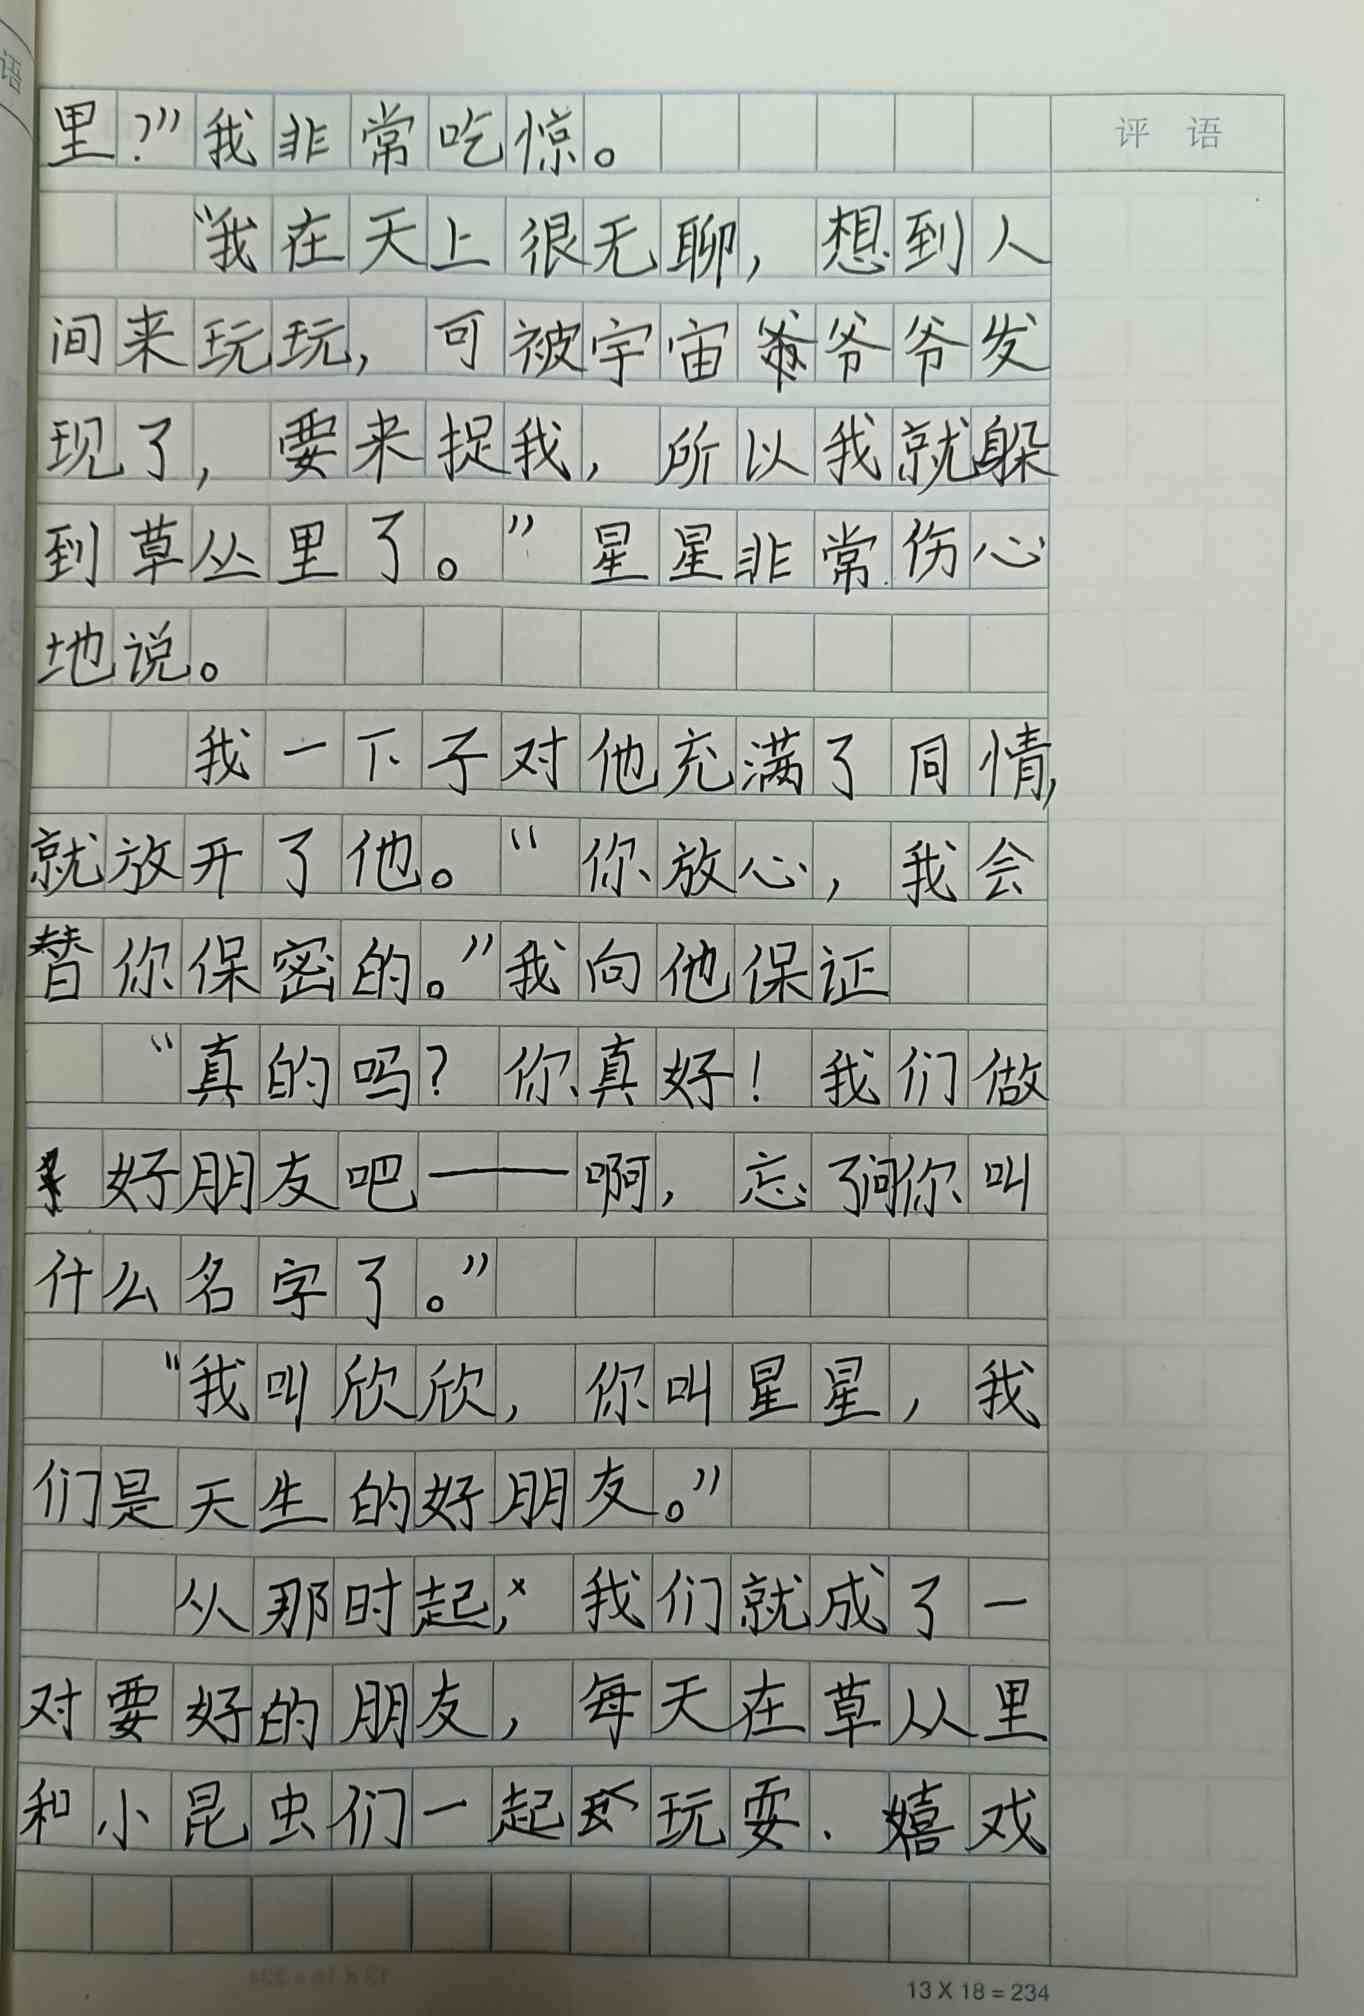 语
里？”我非常吃惊。
评 语
“我在天上很无聊，想到人
间来玩玩，可被宇宙爷爷发
现了，要来捉我，所以我就躲
到草丛里了。”星星非常伤心
地说。
我一下子对他充满了同情，
就放开了他。“你放心，我会
替你保密的。”我向他保证
“真的吗？你真好！我们做
好朋友吧——啊，忘了问你叫
什么名字了。”
“我叫欣欣，你叫星星，我
们是天生的好朋友。”
从那时起，我们就成了一
对要好的朋友，每天在草从里
和小昆虫们一起玩耍、嬉戏
13 X 18 = 234